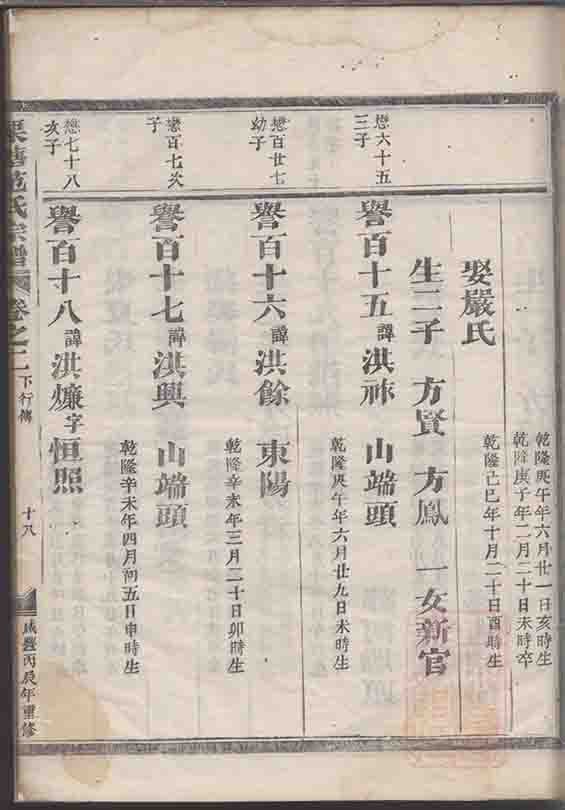 乾隆庚午年六月廿一日亥時生
乾隆庚子年二月二十日未時卒
娶嚴氏
乾隆己巳年十月二十日酉時生
生二子 方賢 方鳳 一女新官
懋六十五
三子
譽百十五 諱洪祚 山端頭
乾隆庚午年六月廿九日未時生
懋百廿七
幼子
譽百十六 諱洪餘 東陽
乾隆辛未年三月二十日卯時生
懋百七次
子
譽百十七 諱洪興 山端頭
乾隆辛未年四月初五日申時生
懋七十八
次子
譽百十八 諱洪爊字恒照
范氏宗譜 卷之二 下行傳 十八 咸豐丙辰年重修